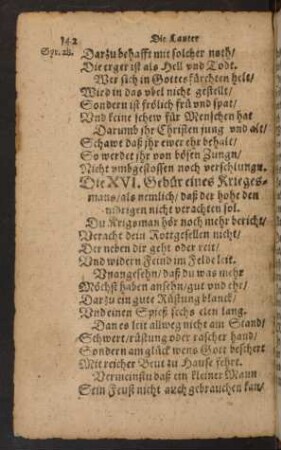 142 Die Lauter
Syr. 28. Darzu behafft mit solcher noth/
Die erger ist als Hell vnd Todt.
Wer sich in Gottes fürchten helt/
Wird in das vbel nicht gestellt/
Sondern ist frölich frü vnd spat/
Vnd keine schew für Menschen hat
Darumb jhr Christen jung vnd alt/
Schawt daß jhr ewer ehr behalt/
So werdet jhr von bösen Zungn/
Nicht vmbgestossen noch verschlungn.
Die XVI. Gebür eines Krieges-
mans/als nemlich/ daß der hohe den
nidrigen nicht verachten sol.
Du Krigsman hör noch mehr bericht/
Veracht dein Rottgesellen nicht/
Der neben dir geht oder reit/
Vnd widern Feind im Felde leit.
Vnangesehn/daß du was mehr
Möchst haben ansehn/gut vnd ehr/
Darzu ein gute Rüstung blanck/
Vnd einen Spieß sechs elen lang.
Dan es leit allweg nicht am Stand/
Schwert/rüstung oder rascher hand/
Sondern am glück wens Gott beschert
Mit reicher Beut zu Hause fehrt.
Vermeinstu daß ein kleiner Mann
Sein Feust nicht auch gebrauchen kan/